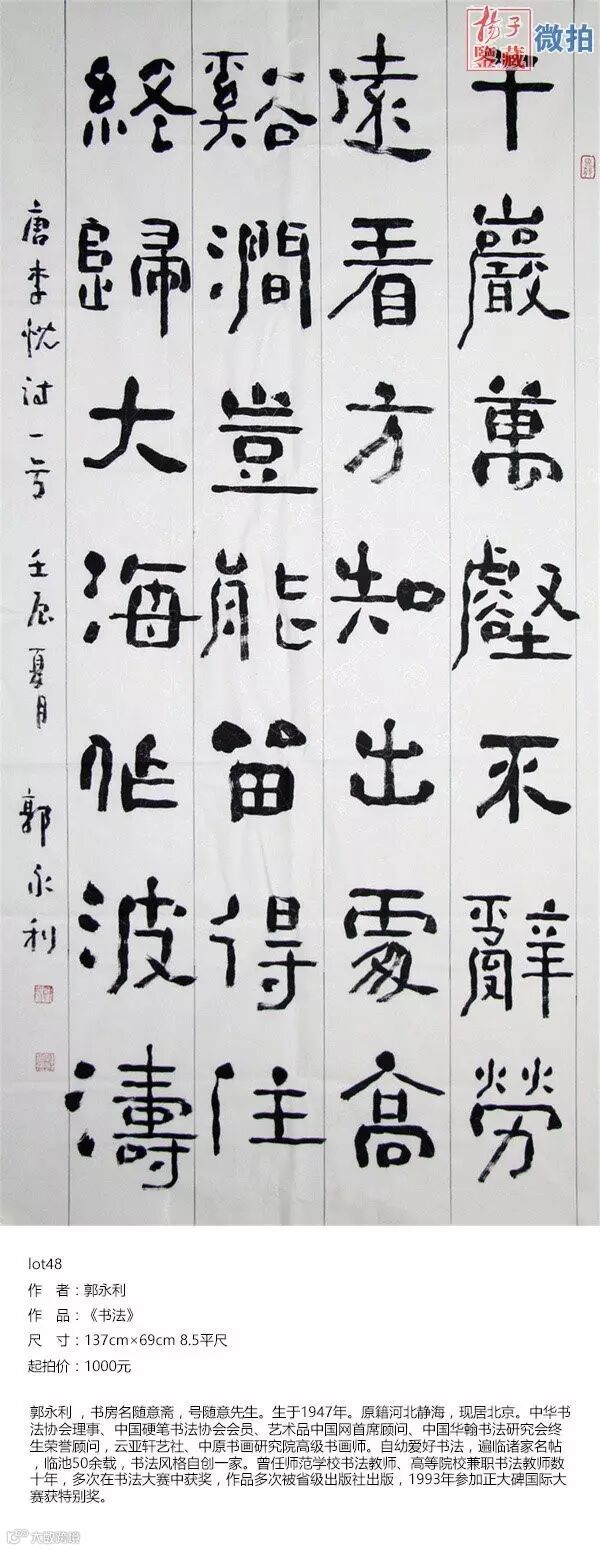 揚子
鑒藏
微拍
千巖萬壑不辭勞
遠看方知出處高
谿澗豈能留得住
終歸大海作波濤
唐李忱诗一首 壬辰夏月 郭永利
lot48
作 者：郭永利
作 品：《书法》
尺 寸：137cm×69cm 8.5平尺
起拍价：1000元
郭永利 ，书房名随意斋，号随意先生。生于1947年。原籍河北静海，现居北京。中华书
法协会理事、中国硬笔书法协会会员、艺术品中国网首席顾问、中国华翰书法研究会终
生荣誉顾问，云亚轩艺社、中原书画研究院高级书画师。自幼爱好书法，遍临诸家名帖
，临池50余载，书法风格自创一家。曾任师范学校书法教师、高等院校兼职书法教师数
十年，多次在书法大赛中获奖，作品多次被省级出版社出版，1993年参加正大碑国际大
赛获特别奖。
大歐跨境